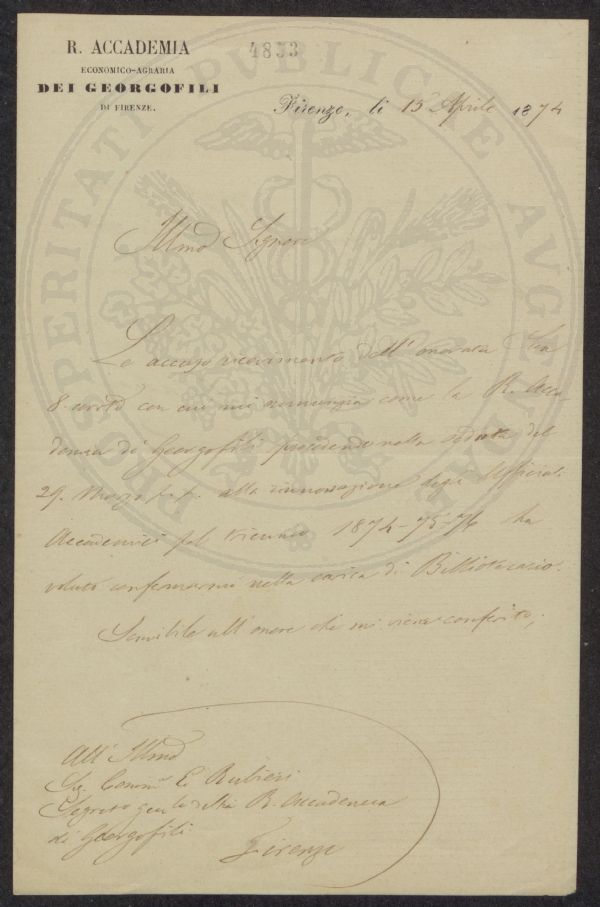 R. ACCADEMIA
ECONOMICO-AGRARIA
DEI GEORGOFILI
DI FIRENZE.
4853
Firenze, li 15 Aprile 1874
PROSPERITATI PUBLICAE AUGENDAE
Illmo Signore
Le accuso ricevimento dell' onorata Sua
8. corr con cui mi annunzia come la R. Acca
demia di Georgofili procedendo nella seduta del
29. Marzo p.p. alla rinnovazione degli Ufficiali
Accademici pel triennio 1874-75-76 ha
voluto confermarmi nella carica di Bibliotecario.
Sensibile all' onore che mi viene conferito,
All' Illmo
Sig. Comm. E. Rubieri
Segret gen le della R. Accademia
di Georgofili
Firenze